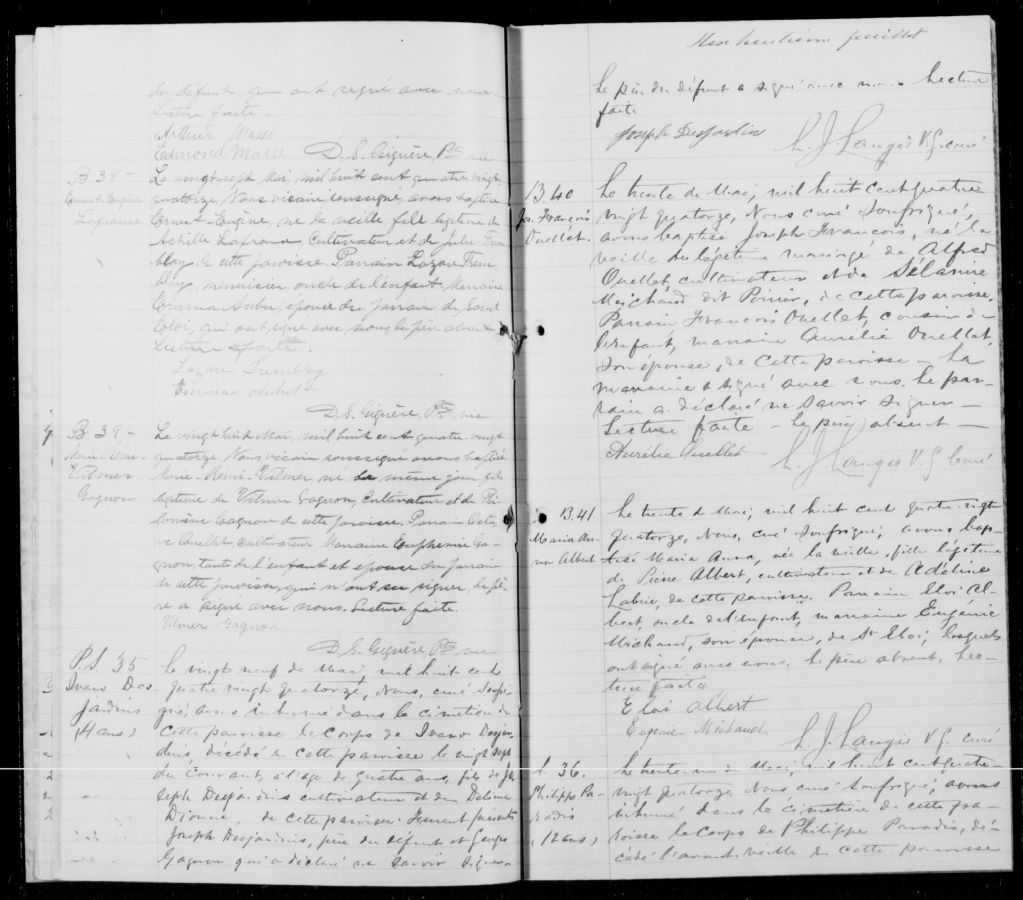 du défunt qui ont signé avec nous
Lecture faite.
Arthur Masse
Edmond Masse D. S. Giguère, Ptre vic
B 38 -
Ernest Eugène
Lafrance
Le vingt sept Mai, mil huit cent quatre vingt
quatorze, Nous vicaire soussigné, avons baptisé
Ernest-Eugène, né la veille, fils légitime de
Achille Lafrance Cultivateur et de Julie Trem
blay de cette paroisse. Parrain Lazare Trem
blay, menuisier oncle de l'enfant Marraine
Emma Aubut, épouse du parrain de Saint
Eloi, qui ont signé avec nous le père absent
Lecture faite.
Lazare Tremblay
Emma Aubut
D. S. Giguère, Ptre vic
B 39, -
Marie-Rémi-
Vilmer
Gagnon
Le vingt huit Mai, mil huit cent quatre vingt
quatorze, Nous vicaire soussigné avons baptisé
Marie-Rémi-Vilmer, né le même jour fils
légitime de Vilmer Gagnon, Cultivateur et de Phi
lomène Gagnon de cette paroisse. Parrain Octa
ve Ouellet, cultivateur, Marraine Euphémie Ga
gnon, tante de l'enfant et épouse du parrain
de cette paroisse, qui n'ont su signer, le pè
re a signé avec nous. Lecture faite.
Vilmer Gagnon
D. S. Giguère, Ptre vic
P. S 35
Ivano Des
jardins
(4 ans)
Le vingt neuf de Mai, mil huit cent
quatre vingt quatorze, Nous, curé soussi-
gné, avons inhumé dans le cimetière de
cette paroisse le corps de Ivano Desjar-
dins, décédé en cette paroisse le vingt sept
du courant, à l'age de quatre ans, fils de Jo
seph Desjardins cultivateur et de Delima
Dionne, de cette paroisse. Furent présents
Joseph Desjardins, père du défunt et Georges
Gagnon qui a déclaré ne savoir signer
Dix huitième feuillet
Le père du défunt a signé avec nous Lecture
faite
Joseph Desjardin L. J. Langis V. G. curé
B. 40
Jos. François
Ouellet.
Le trente de Mai, mil huit cent quatre
vingt quatorze, Nous curé soussigné,
avons baptisé Joseph François, né la
veille du légitime mariage de Alfred
Ouellet cultivateur et de Sélanire
Michaud dit Poirier, de cette paroisse.
Parrain François Ouellet, cousin de
l'enfant, marraine Aurélie Ouellet,
son épouse, de cette paroisse - La
marraine a signé avec nous. Le par-
rain a déclaré ne savoir signer -
Lecture faite - le père absent -
Aurélie Ouellet L. J. Langis V. G. Curé
B. 41
Maria An-
na Albert
Le trente de Mai, mil huit cent quatre vingt
quatorze, Nous, curé soussigné, avons bap-
tisé Maria Anna, née la veille, fille légitime
de Pierre Albert, cultivateur et de Adéline
Labrie, de cette paroisse. Parrain Eloi Al-
bert, oncle de l'enfant, marraine Eugénie
Michaud, son épouse, de St Eloi, lesquels
ont signé avec nous. Le père absent. Lec-
ture faite
Eloi Albert
Eugenie Michaud L. J. Langis V. G. curé
S. 36.
Philippe Pa-
radis
(12 ans)
Le trente un de Mai, mil huit cent quatre-
vingt quatorze Nous curé soussigné, avons
inhumé dans le cimetière de cette pa-
roisse le corps de Philippe Paradis, dé-
cédé l'avant-veille en cette paroisse